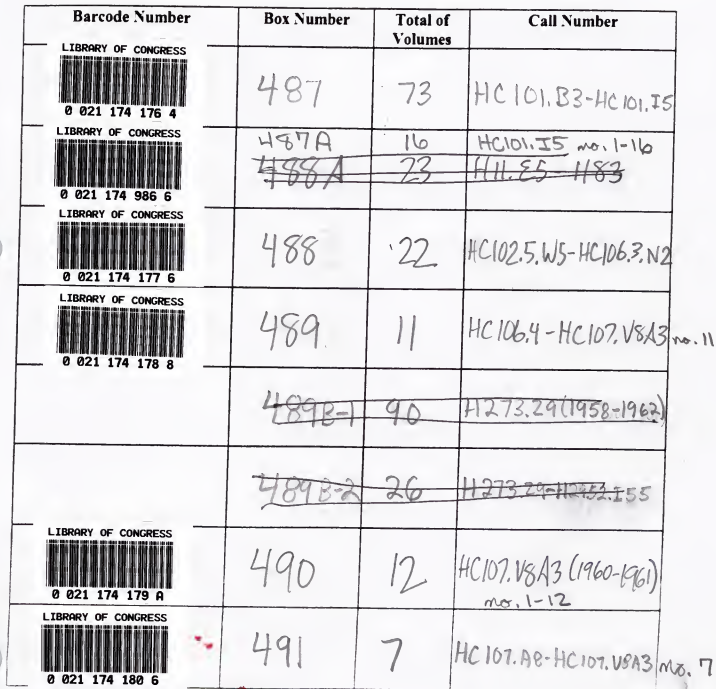 Barcode Number Box Number Total of Volumes Call Number
LIBRARY OF CONGRESS
0 021 174 176 4
487 73 HC101.B3-HC101.I5
LIBRARY OF CONGRESS
0 021 174 986 6
487A 16 HC101.I5 no. 1-16
488A 23 H11.E5-H83
LIBRARY OF CONGRESS
0 021 174 177 6
488 22 HC102.5.W5-HC106.3.N2
LIBRARY OF CONGRESS
0 021 174 178 8
489 11 HC106.4-HC107.V8A3 no. 11
489B-1 90 H273.29(1958-1962)
489B-2 26 H273.29-
LIBRARY OF CONGRESS
0 021 174 179 A
490 12 HC107.V8A3 (1960-1961)
no. 1-12
LIBRARY OF CONGRESS
0 021 174 180 6
491 7 HC107.A8-HC107.V8A3 no. 7